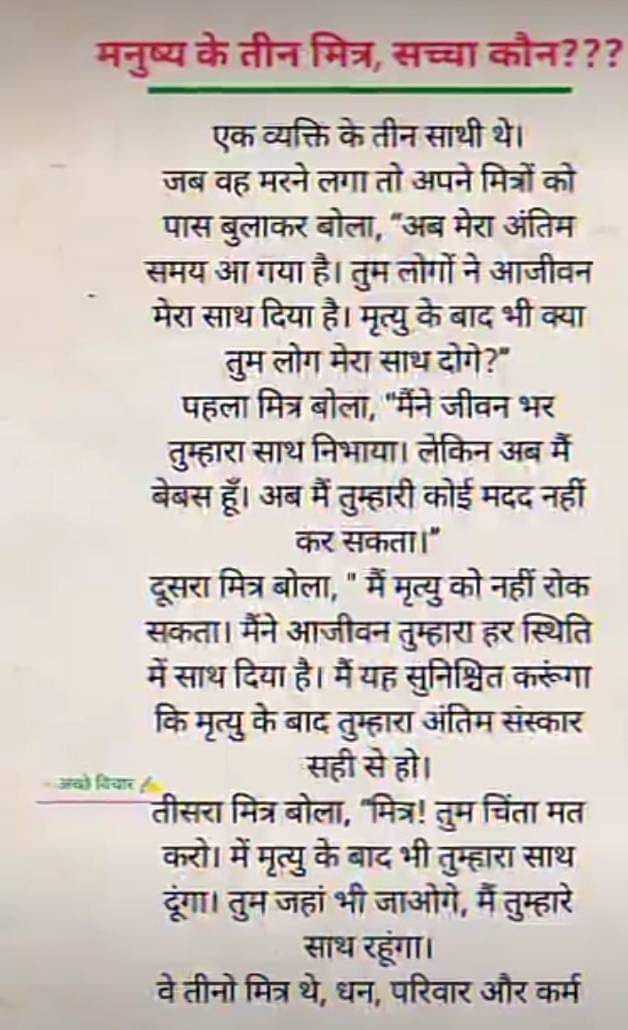 मनुष्य के तीन मित्र, सच्चा कौन???
एक व्यक्ति के तीन साथी थे।
जब वह मरने लगा तो अपने मित्रों को
पास बुलाकर बोला, "अब मेरा अंतिम
समय आ गया है। तुम लोगों ने आजीवन
मेरा साथ दिया है। मृत्यु के बाद भी क्या
तुम लोग मेरा साथ दोगे?"
पहला मित्र बोला, "मैंने जीवन भर
तुम्हारा साथ निभाया। लेकिन अब मैं
बेबस हूँ। अब मैं तुम्हारी कोई मदद नहीं
कर सकता।"
दूसरा मित्र बोला, " मैं मृत्यु को नहीं रोक
सकता। मैंने आजीवन तुम्हारा हर स्थिति
में साथ दिया है। मैं यह सुनिश्चित करूंगा
कि मृत्यु के बाद तुम्हारा अंतिम संस्कार
सही से हो।
अच्छे विचार
तीसरा मित्र बोला, "मित्र! तुम चिंता मत
करो। में मृत्यु के बाद भी तुम्हारा साथ
दूंगा। तुम जहां भी जाओगे, मैं तुम्हारे
साथ रहूंगा।
वे तीनो मित्र थे, धन, परिवार और कर्म